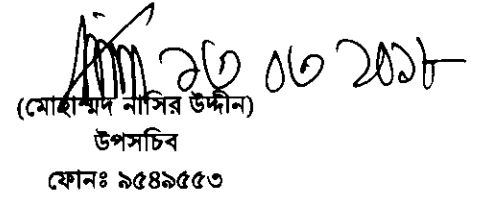 ২৩ ০৩ ২০১৮
(মোহাম্মদ নাসির উদ্দীন)
উপসচিব
ফোনঃ ৯৫৪৯৫৫৩